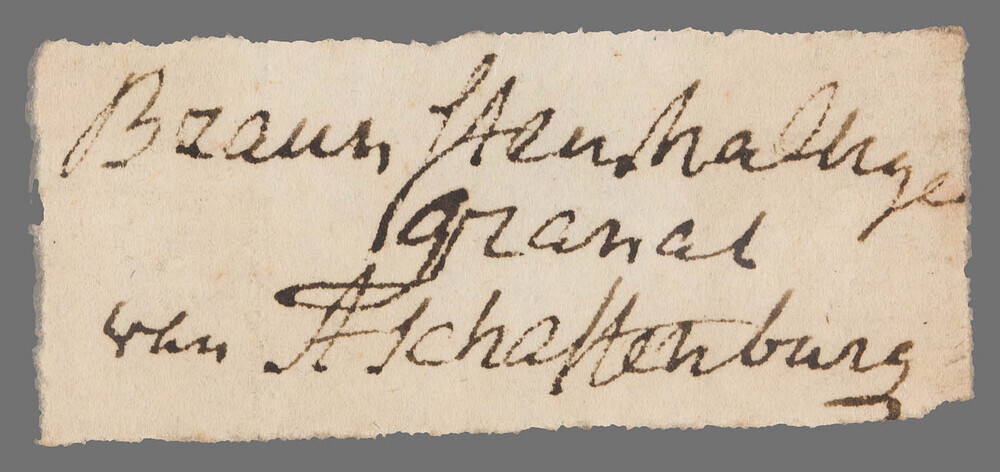 Braun Stein haltige
granat
von Aschaffenburg